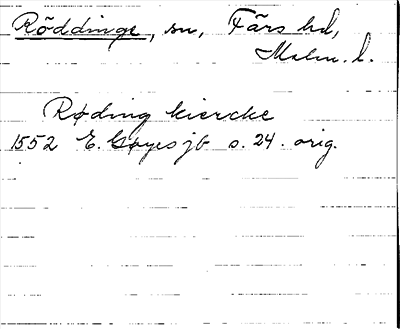 Röddinge, sn, Färs hd,
Malm. l.
Røding kiercke
1552 E. Gøyes jb s. 24. orig.